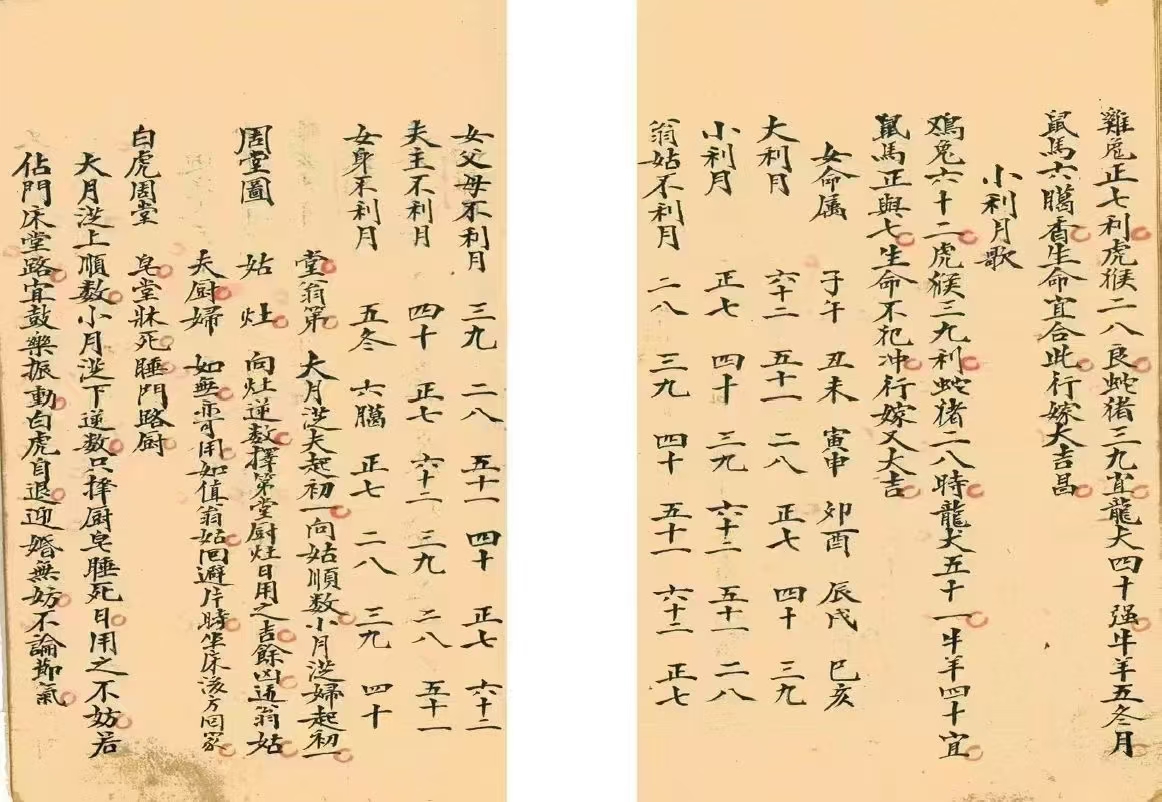 雞兔正七利虎猴二八良蛇猪三九宜龍犬四十强牛羊五冬月
鼠馬六臈香生命宜合此行嫁大吉昌
小利月歌
鴆兔六十二虎猴三九利蛇猪二八時龍犬五十一牛羊四十宜
鼠馬正與七生命不犯冲行嫁又大吉
女命属 子午 丑未 寅申 夘酉 辰戌 巳亥
大利月 六十二 五十一 二八 正七 四十 三九
小利月 正七 四十 三九 六十二 五十一 二八
翁姑不利月 二八 三九 四十 五十一 六十二 正七
女父母不利月 三九 二八 五十一 四十 正七 六十二
夫主不利月 四十 正七 六十二 三九 二八 五十一
女身不利月 五冬 六臈 正七 二八 三九 四十
堂翁第 大月從夫起初一向姑順数小月從婦起初一
周堂圖 姑 灶 向灶逆数擇第堂厨灶日用之吉餘凶逅翁姑
夫厨婦 如無亦可用如值翁姑回避片時坐床後方回家
白虎周堂 皂堂牀死睡門路厨
大月從上順数小月從下逆数只擇厨皂睡死日用之不妨若
佔門床堂路宜鼓樂振動白虎自退迎婚無妨不論節氣